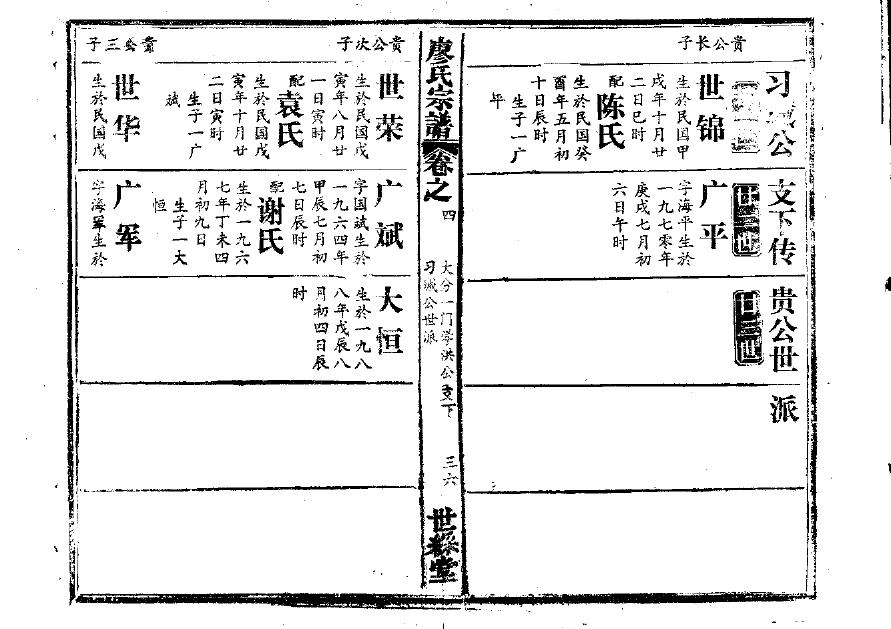 习城公支下传贵公世派
贵公长子
世锦
生於民国甲
戌年十月廿
二日巳时
配陈氏
生於民国癸
酉年五月初
十日辰时
生子一广
平
廿二世
广平
字海平生於
一九七零年
庚戌七月初
六日午时
廿三世
廖氏宗譜
卷之四
大分一门学洪公支下
习城公世派
三六
世綵堂
贵公次子
世荣
生於民国戊
寅年八月廿
一日寅时
配袁氏
生於民国戊
寅年十月廿
二日寅时
生子一广
斌
贵公三子
世华
生於民国戊
广斌
字国斌生於
一九六四年
甲辰七月初
七日辰时
配谢氏
生於一九六
七年丁未四
月初九日
生子一大
恒
广军
字海军生於
大恒
生於一九八
八年戊辰八
月初四日辰
时